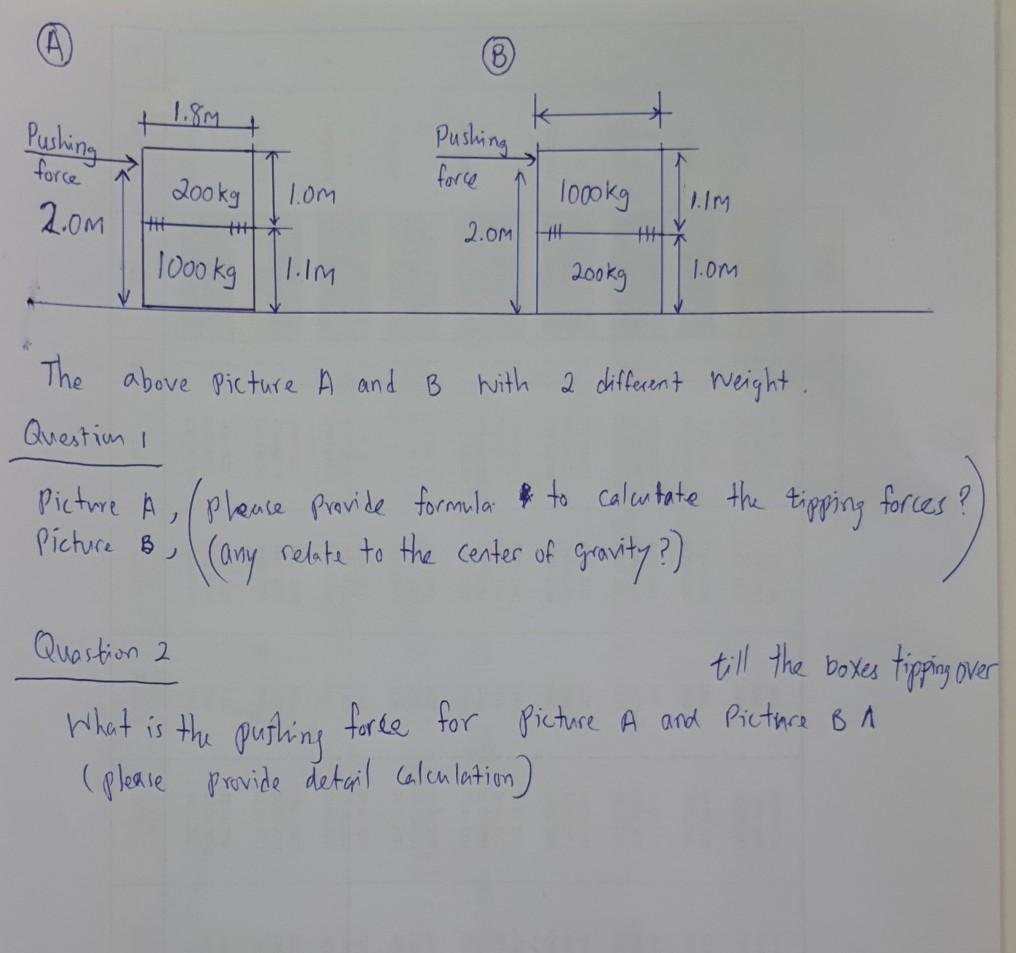 A
B
1.8M
Pushing
force
2.0M
200kg
1.0M
1000kg
1.1M
Pushing
force
2.0M
1000kg
1.1M
200kg
1.0M
The above picture A and B with 2 different weight.
Question 1
Picture A, (please provide formula to calcutate the tipping forces?)
Picture B, ((any relate to the center of gravity?))
Quastion 2
till the boxes tipping over
What is the pushing force for picture A and Picture B ʌ
(please provide detail calculation)